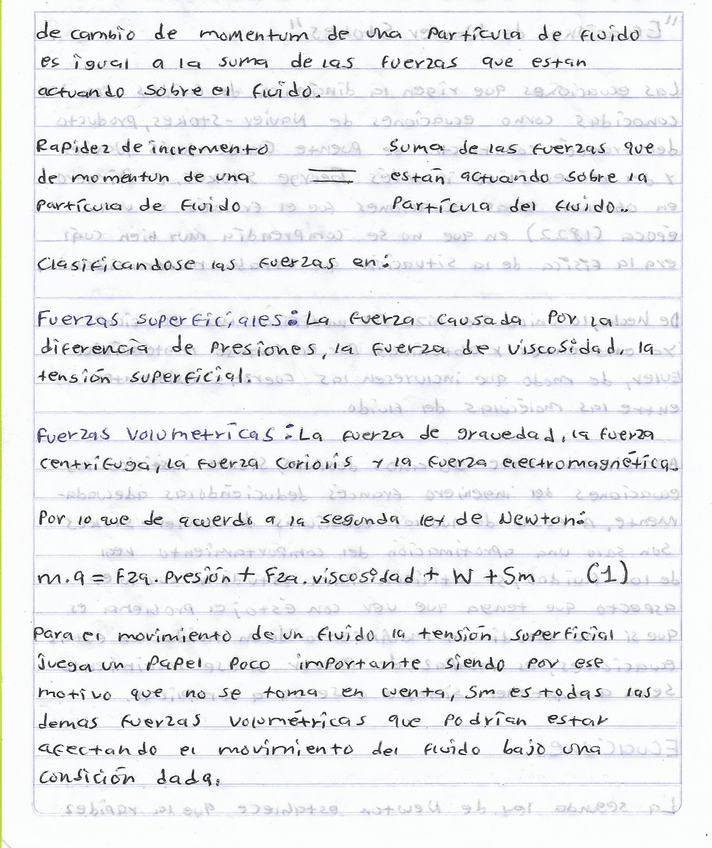 de cambio de momentum de una Partícula de fluido
es igual a la suma de las fuerzas que estan
actuando sobre el fluido.
Rapidez de incremento
de momentun de una
Partícula de fluido
=
Suma de las fuerzas que
están actuando sobre la
Partícula del fluido..
Clasificandose las fuerzas en:
Fuerzas superficiales: La fuerza causada Por la
diferencia de Presiones, la fuerza de viscosidad, la
tensión superficial.
Fuerzas Volumetricas: La fuerza de gravedad, la fuerza
centrífuga, la fuerza Coriolis y la fuerza electromagnética.
Por lo que de acuerdo a la segunda ley de Newton:
m.a = Fza. Presión + Fza. viscosidad + W + Sm (1)
Para el movimiento de un fluido la tensión superficial
juega un Papel Poco importante siendo por ese
motivo que no se toma en cuenta, Sm es todas las
demas fuerzas volumétricas que Podrían estar
afectando el movimiento del fluido bajo una
condición dada.